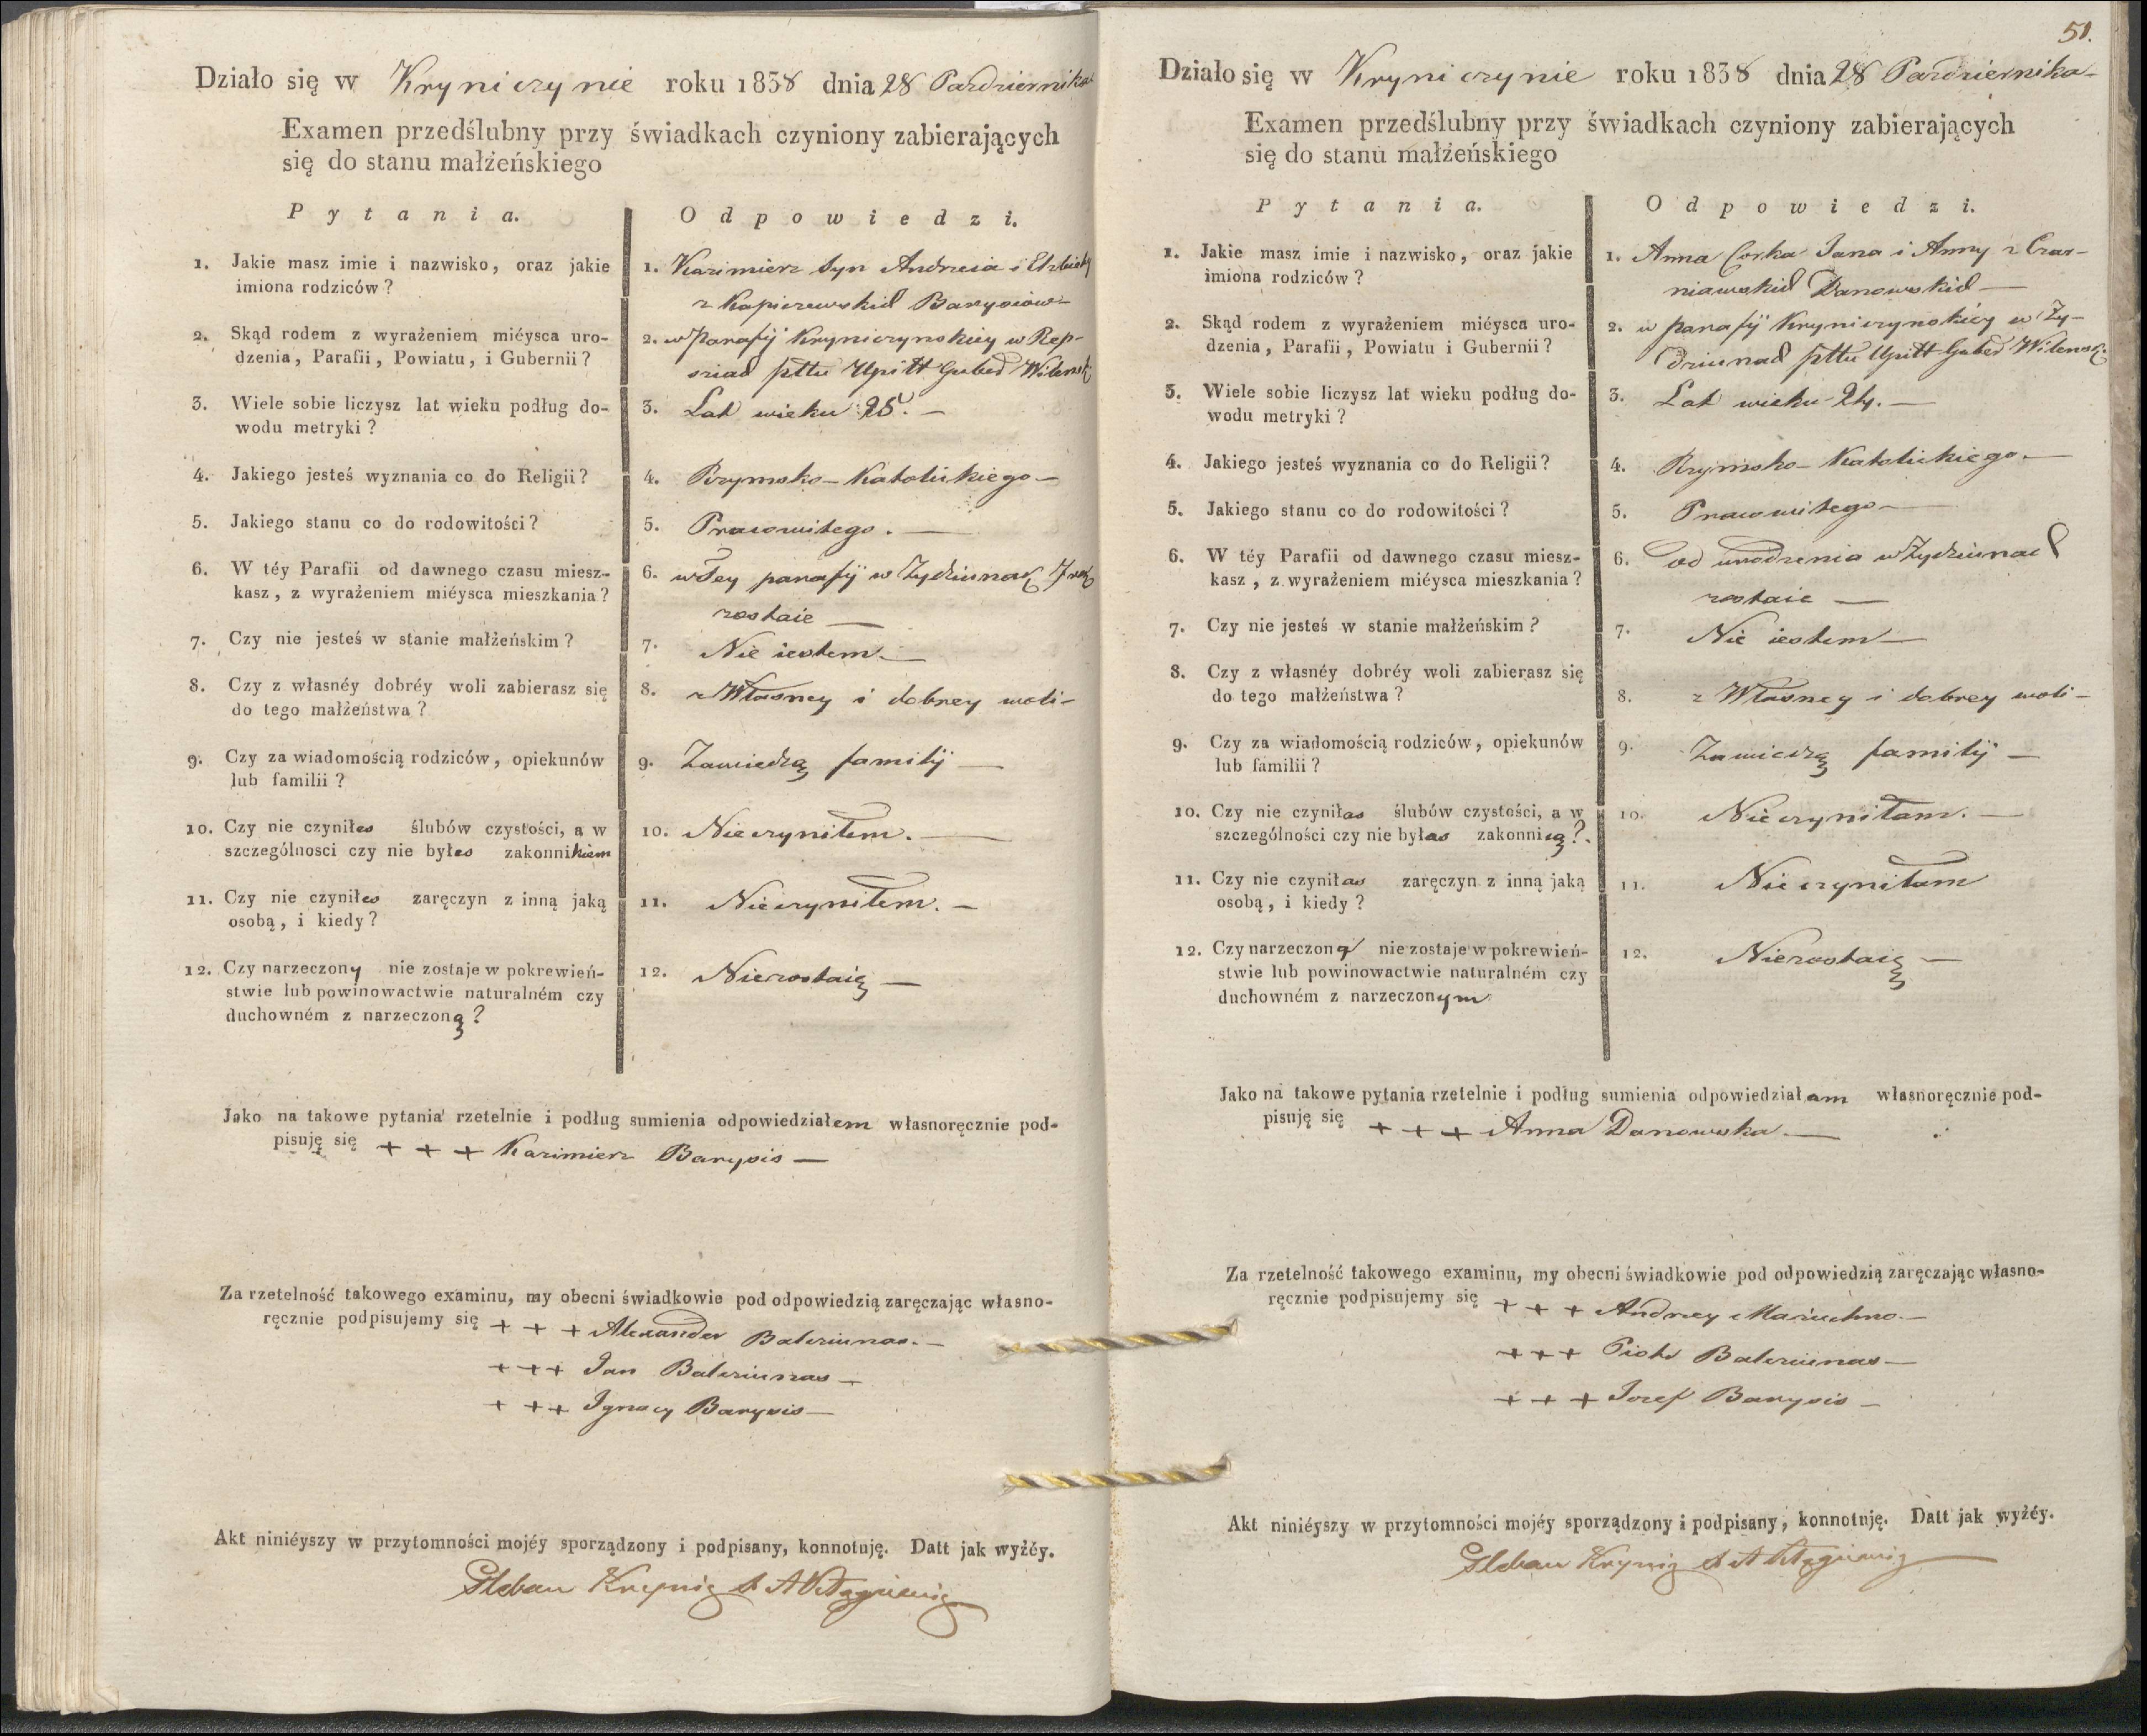 Działo się w Kryniczynie roku 1838 dnia 28 Pazdziernika
Examen przedślubny przy świadkach czyniony zabierających
się do stanu małżeńskiego
Pytania.
Odpowiedzi.
1. Jakie masz imie i nazwisko, oraz jakie
imiona rodziców?
1. Kazimierz Syn Andrzeia i Elzbiety
z Kapiszewskich Barysiow
2. Skąd rodem z wyrażeniem miéysca uro-
dzenia, Parafii, Powiatu, i Gubernii?
2. w Parafij Kryniczynskiey w Rep-
sziach pttu Upitt Guber Wilensk
3. Wiele sobie liczysz lat wieku podług do-
wodu metryki?
3. Lat wieku 25. –
4. Jakiego jesteś wyznania co do Religii?
4. Rzymsko-Katolickiego –
5. Jakiego stanu co do rodowitości?
5. Pracowitego. –
6. W téy Parafii od dawnego czasu miesz-
kasz, z wyrażeniem miéysca mieszkania?
6. w Tey parafij w Zydziunach
zostaie –
7. Czy nie jesteś w stanie małżeńskim?
7. Nie iestem –
8. Czy z własnéy dobréy woli zabierasz się
do tego małżeństwa?
8. z Własney i dobrey woli –
9. Czy za wiadomością rodziców, opiekunów
lub familii?
9. Zawiedzą familij –
10. Czy nie czyniłes ślubów czystości, a w
szczególnosci czy nie byłes zakonnikiem
10. Nieczyniłem. –
11. Czy nie czyniłes zaręczyn z inną jaką
osobą, i kiedy?
11. Nieczyniłem. –
12. Czy narzeczony nie zostaje w pokrewień-
stwie lub powinowactwie naturalném czy
duchowném z narzeczoną?
12. Niezostaię –
Jako na takowe pytania rzetelnie i podług sumienia odpowiedziałem własnoręcznie pod-
pisuję się + + + Kazimierz Barysis –
Za rzetelność takowego examinu, my obecni świadkowie pod odpowiedzią zaręczając własno-
ręcznie podpisujemy się + + + Alexander Balcziunas. –
+ + + Jan Balcziunas –
+ + + Ignacy Barysis –
Akt niniéyszy w przytomności mojéy sporządzony i podpisany, konnotuję. Datt jak wyżéy.
Pleban Krynic
51.
Działo się w Kryniczynie roku 1838 dnia 28 Pazdziernika –
Examen przedślubny przy świadkach czyniony zabierających
się do stanu małżeńskiego
Pytania.
Odpowiedzi.
1. Jakie masz imie i nazwisko, oraz jakie
imiona rodziców?
1. Anna Corka Jana i Anny z Czar-
niawskich Danowskich –
2. Skąd rodem z wyrażeniem miéysca uro-
dzenia, Parafii, Powiatu i Gubernii?
2. w parafij Kryniczynskiey w Zy-
dziunach pttu Upitt Guber Wilensk
3. Wiele sobie liczysz lat wieku podług do-
wodu metryki?
3. Lat wieku 24. –
4. Jakiego jesteś wyznania co do Religii?
4. Rzymsko-Katolickiego. –
5. Jakiego stanu co do rodowitości?
5. Pracowitego –
6. W téy Parafii od dawnego czasu miesz-
kasz, z wyrażeniem miéysca mieszkania?
6. od urodzenia w Zydziunach
zostaie –
7. Czy nie jesteś w stanie małżeńskim?
7. Nie iestem –
8. Czy z własnéy dobréy woli zabierasz się
do tego małżeństwa?
8. z Własney i dobrey woli –
9. Czy za wiadomością rodziców, opiekunów
lub familii?
9. Zawiedzą familij –
10. Czy nie czyniłas ślubów czystości, a w
szczególności czy nie byłas zakonnicą?
10. Nieczyniłam. –
11. Czy nie czyniłas zaręczyn z inną jaką
osobą, i kiedy?
11. Nieczyniłam
12. Czy narzeczona nie zostaje w pokrewień-
stwie lub powinowactwie naturalném czy
duchowném z narzeczonym
12. Niezostaię –
Jako na takowe pytania rzetelnie i podług sumienia odpowiedziałam własnoręcznie pod-
pisuję się + + + Anna Danowska –
Za rzetelność takowego examinu, my obecni świadkowie pod odpowiedzią zaręczając własno-
ręcznie podpisujemy się + + + Andrzey Maziuchno –
+ + + Piotr Balcziunas –
+ + + Jozef Barysis –
Akt niniéyszy w przytomności mojéy sporządzony i podpisany, konnotuję. Datt jak wyżéy.
Pleban Krynic